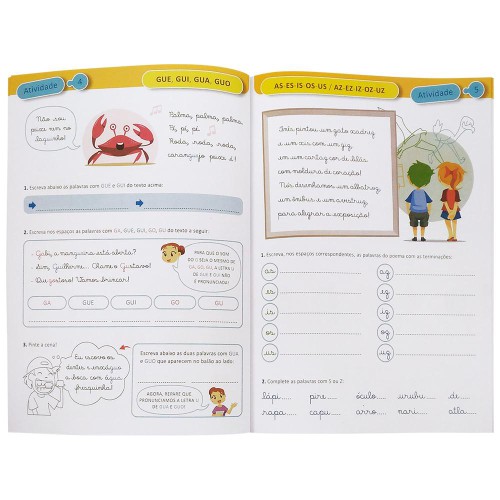 Atividade 4
GUE, GUI, GUA, GUO
Não sou
peixe nem no
laguinho!
Palma, palma, palma,
Pé, pé, pé
Roda, roda, roda,
caranguejo peixe é!
1. Escreva abaixo as palavras com GUE e GUI do texto acima:
2. Escreva nos espaços as palavras com GA, GUE, GUI, GO, GU do texto a seguir:
Gabi, a mangueira está aberta?
Sim, Guilherme. Chame o Gustavo!
Que gostoso! Vamos brincar!
PARA QUE O SOM
DO G SEJA O MESMO DE
GA, GO, GU, A LETRA U
DE GUE E GUI NÃO
É PRONUNCIADA!
GA GUE GUI GO GU
3. Pinte a cena!
Eu escovo os
dentes e enxáguo
a boca com água
fresquinha!
Escreva abaixo as duas palavras com GUA
e GUO que aparecem no balão ao lado:
AGORA, REPARE QUE
PRONUNCIAMOS A LETRA U
DE GUA E GUO!
AS-ES-IS-OS-US / AZ-EZ-IZ-OZ-UZ
Atividade 5
Inês pintou um gato xadrez
e um xis com um giz
em um cartaz cor de lilás
com moldura de coração!
Nós desenhamos um albatroz,
um ônibus e um avestruz
para alegrar a exposição!
1. Escreva, nos espaços correspondentes, as palavras do poema com as terminações:
as az
es ez
is iz
os oz
us uz
2. Complete as palavras com S ou Z:
lápi pire óculo urubu de
rapa capu arro nari atla